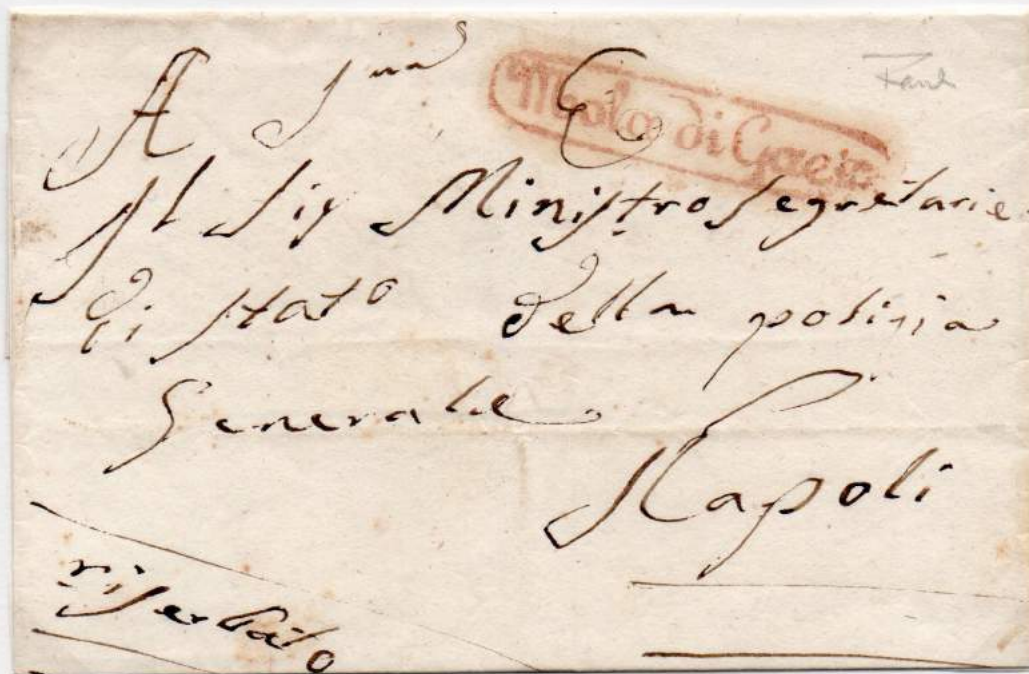 A Sua E
Mola di Gaeta
Il Sig Ministro Segretario
di Stato della polizia
Generale
Napoli
riserbato